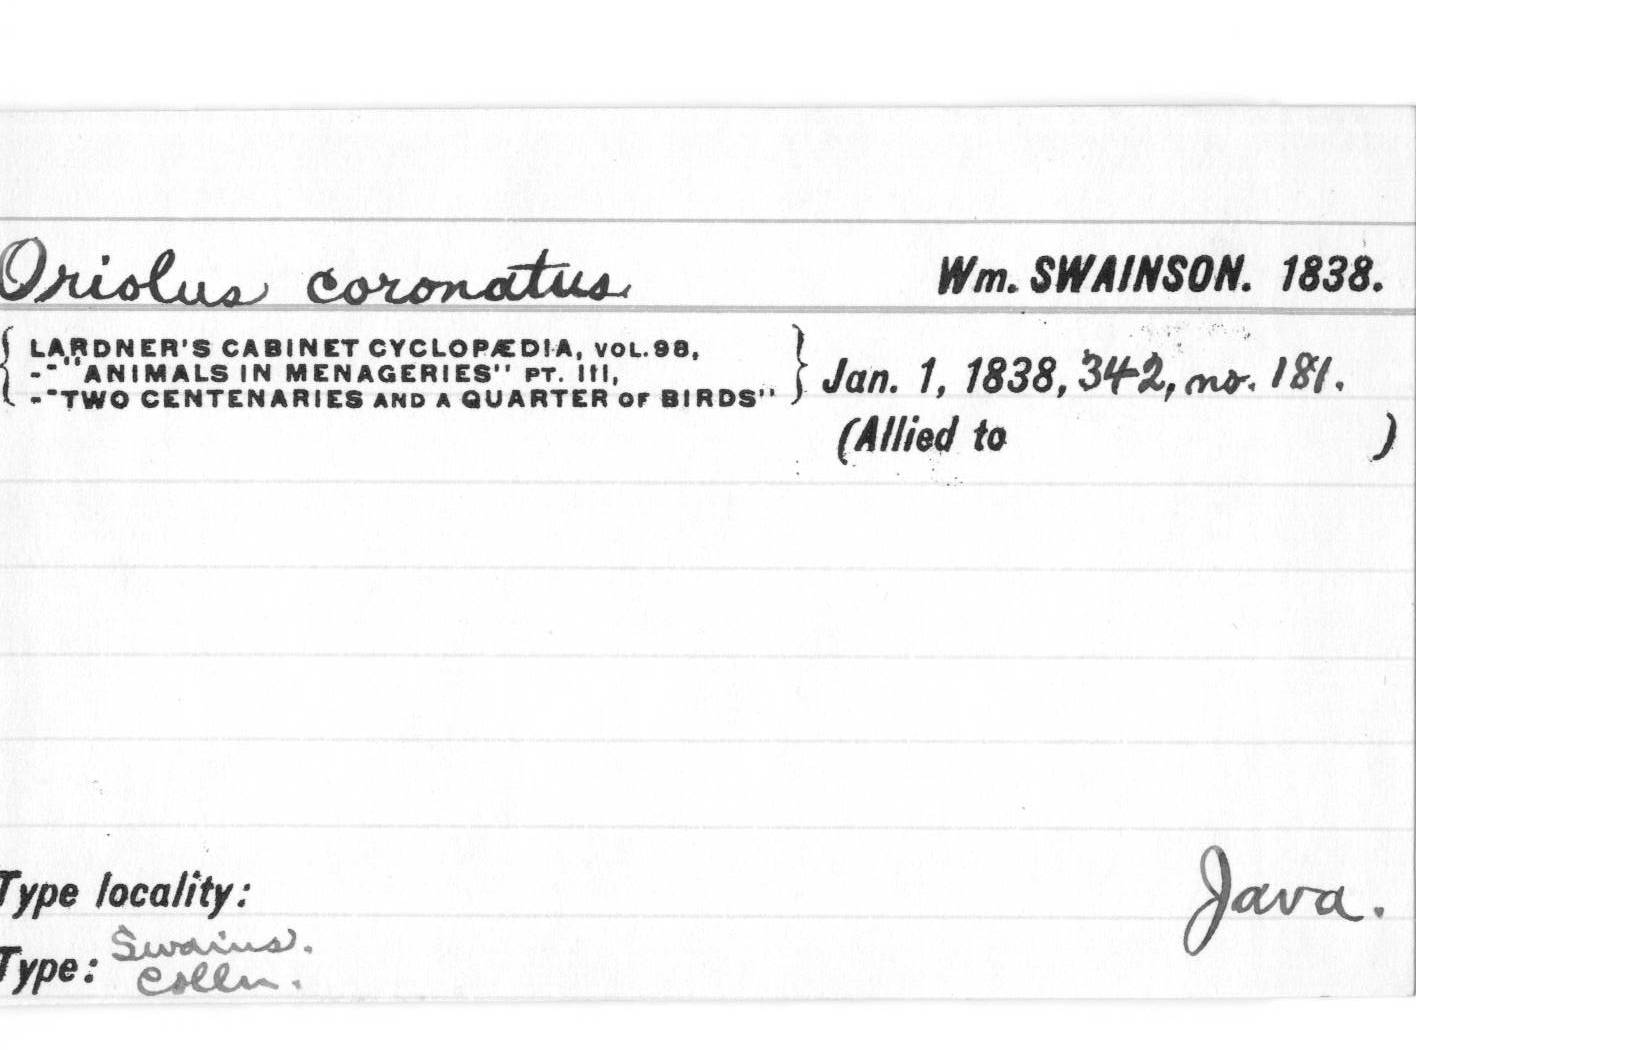 Oriolus coronatus Wm. SWAINSON. 1838.
{ LARDNER'S CABINET CYCLOPÆDIA, VOL. 98,
-- "ANIMALS IN MENAGERIES" PT. III,
-- "TWO CENTENARIES AND A QUARTER OF BIRDS" } Jan. 1, 1838, 342, no. 181.
(Allied to )
Type locality: Java.
Type: Swains.
Colln.